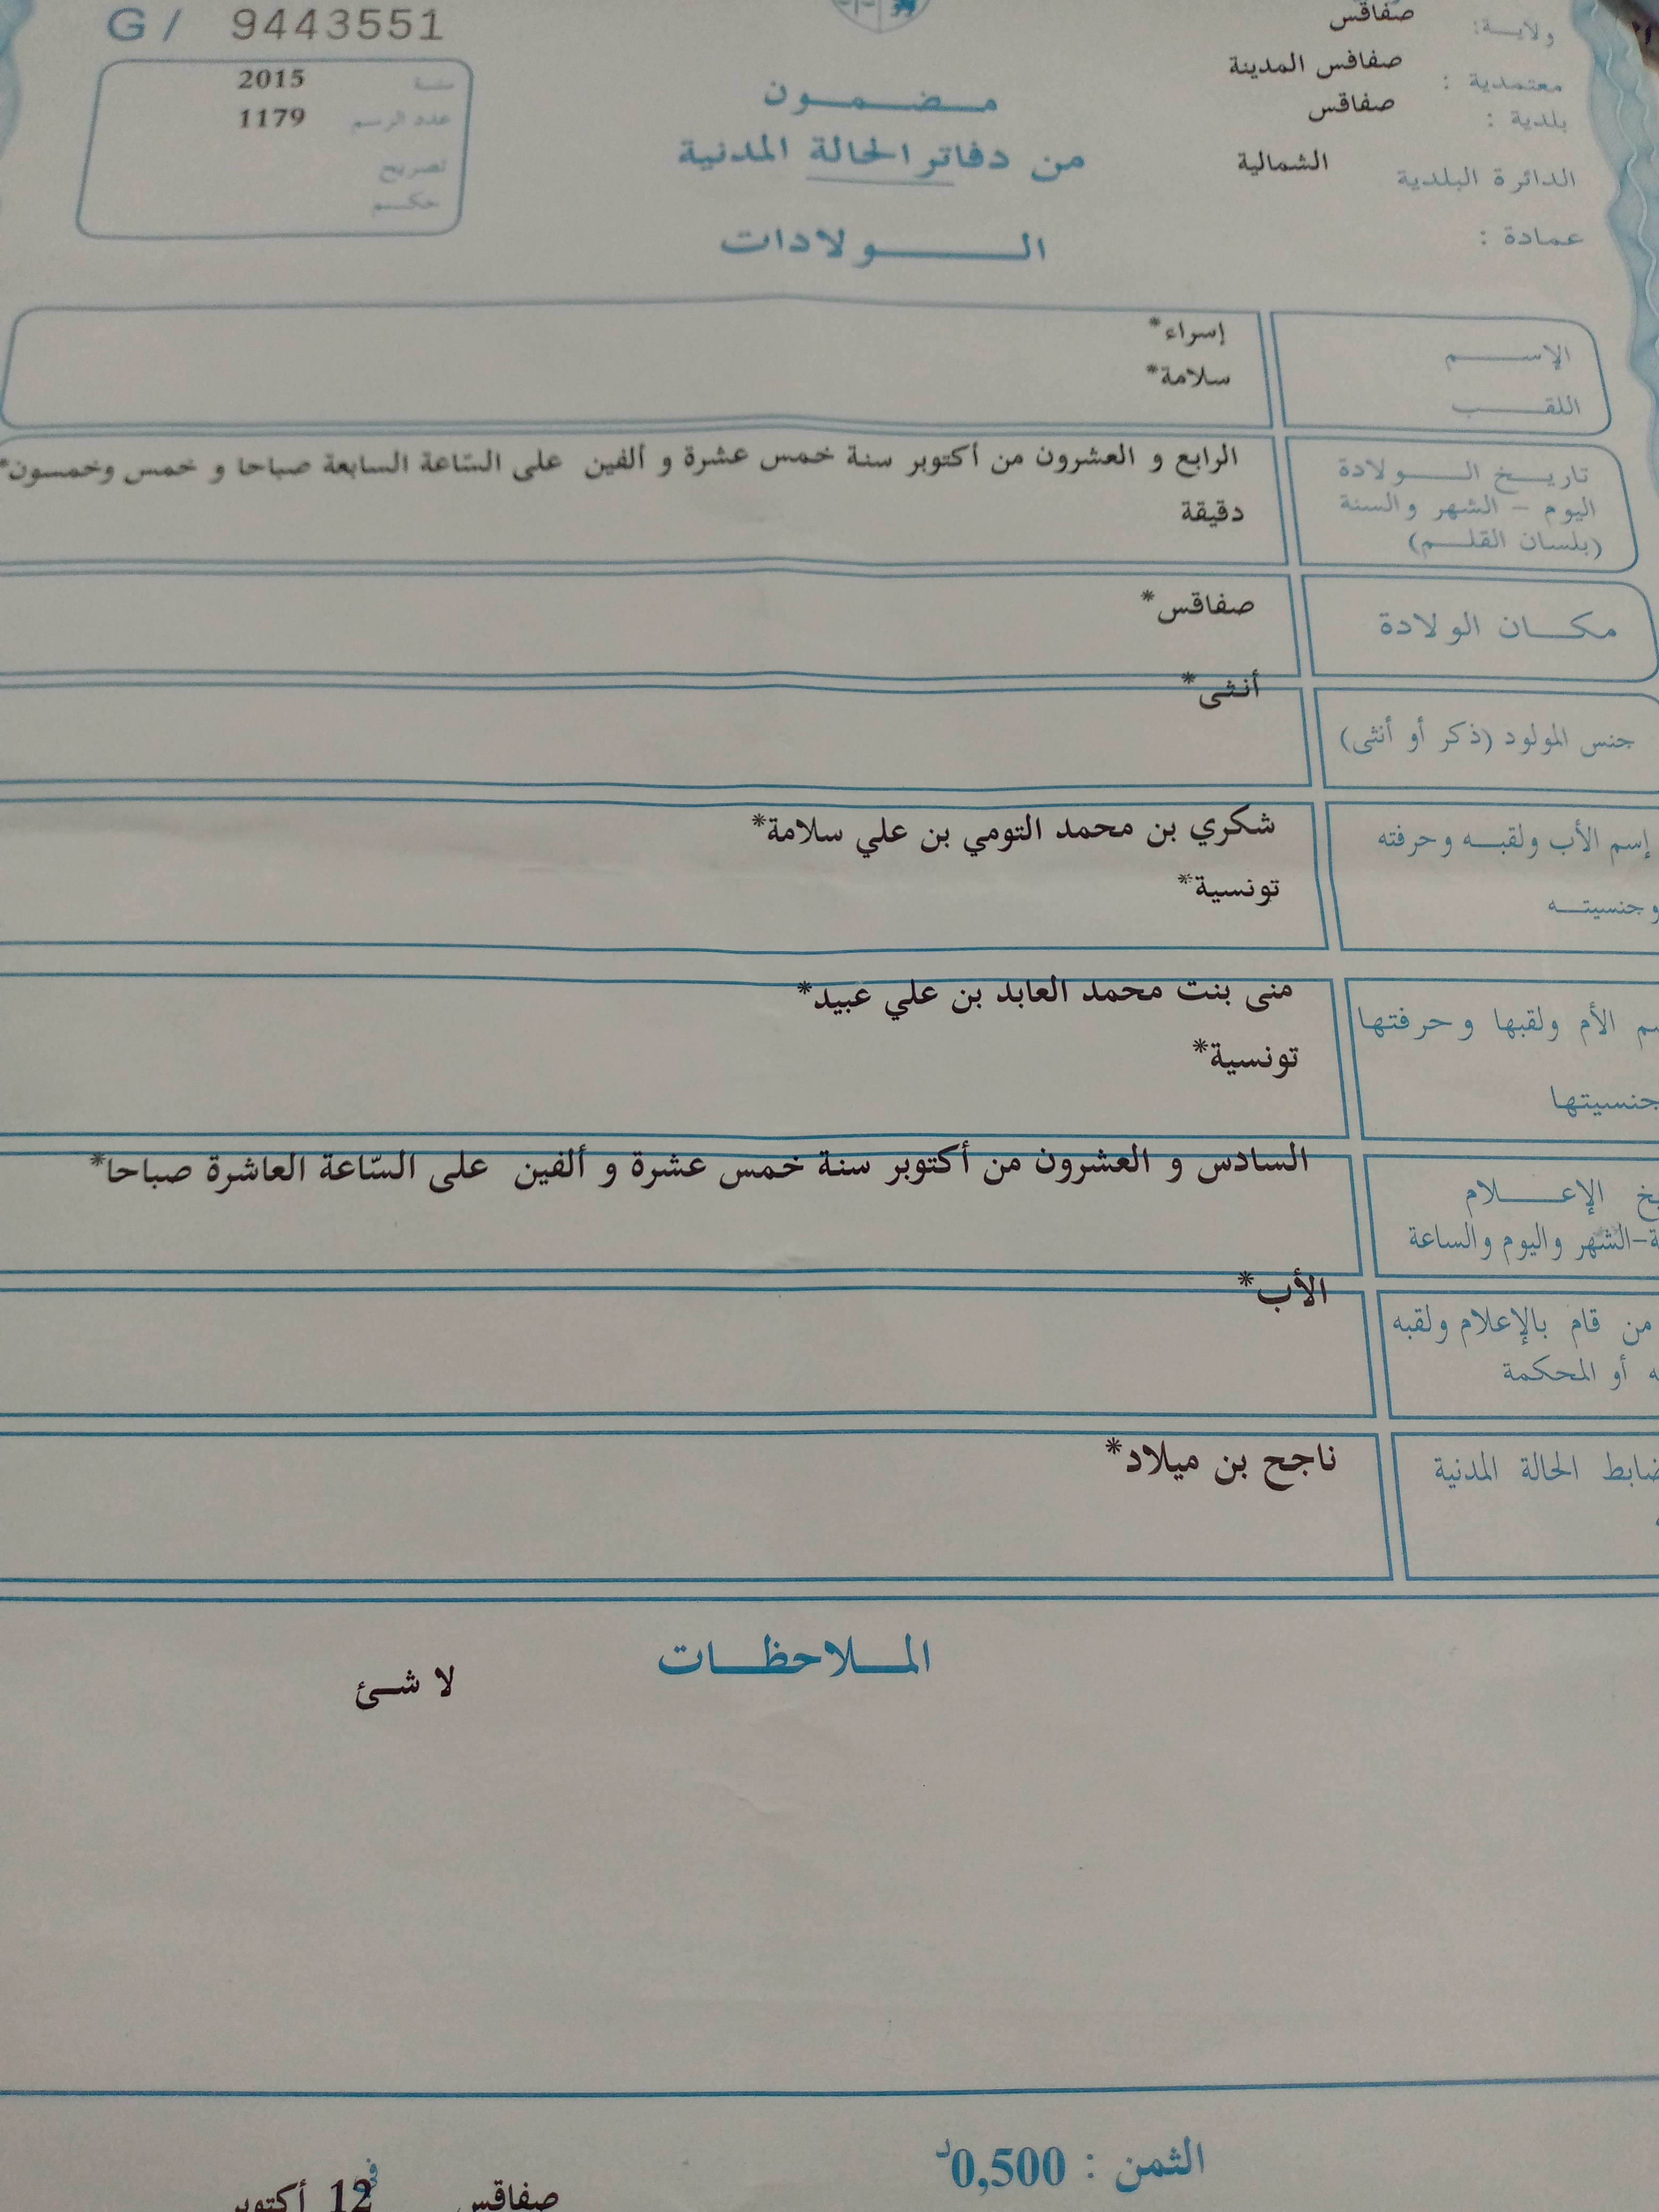 G / 9443551
سنة 2015
عدد الرسم 1179
تصريح
حكم
ولاية: صفاقس
معتمدية : صفاقس المدينة
بلدية : صفاقس
الدائرة البلدية الشمالية
عمادة :
مضمون
من دفاتر الحالة المدنية
الولادات
الإسم إسراء*
اللقب سلامة*
تاريخ الولادة
اليوم - الشهر والسنة
(بلسان القلم)
الرابع و العشرون من أكتوبر سنة خمس عشرة و ألفين على السّاعة السابعة صباحا و خمس وخمسون*
دقيقة
مكان الولادة صفاقس*
جنس المولود (ذكر أو أنثى) أنثى*
إسم الأب ولقبه وحرفته شكري بن محمد التومي بن علي سلامة*
وجنسيته تونسية*
الأم ولقبها وحرفتها منى بنت محمد العابد بن علي عبيد*
جنسيتها تونسية*
الإعلام
الشهر واليوم والساعة
السادس و العشرون من أكتوبر سنة خمس عشرة و ألفين على السّاعة العاشرة صباحا*
من قام بالإعلام ولقبه
أو المحكمة
الأب*
ضابط الحالة المدنية ناجح بن ميلاد*
الملاحظات
لا شئ
الثمن : 0,500د
صفاقس في 12 أكتوبر